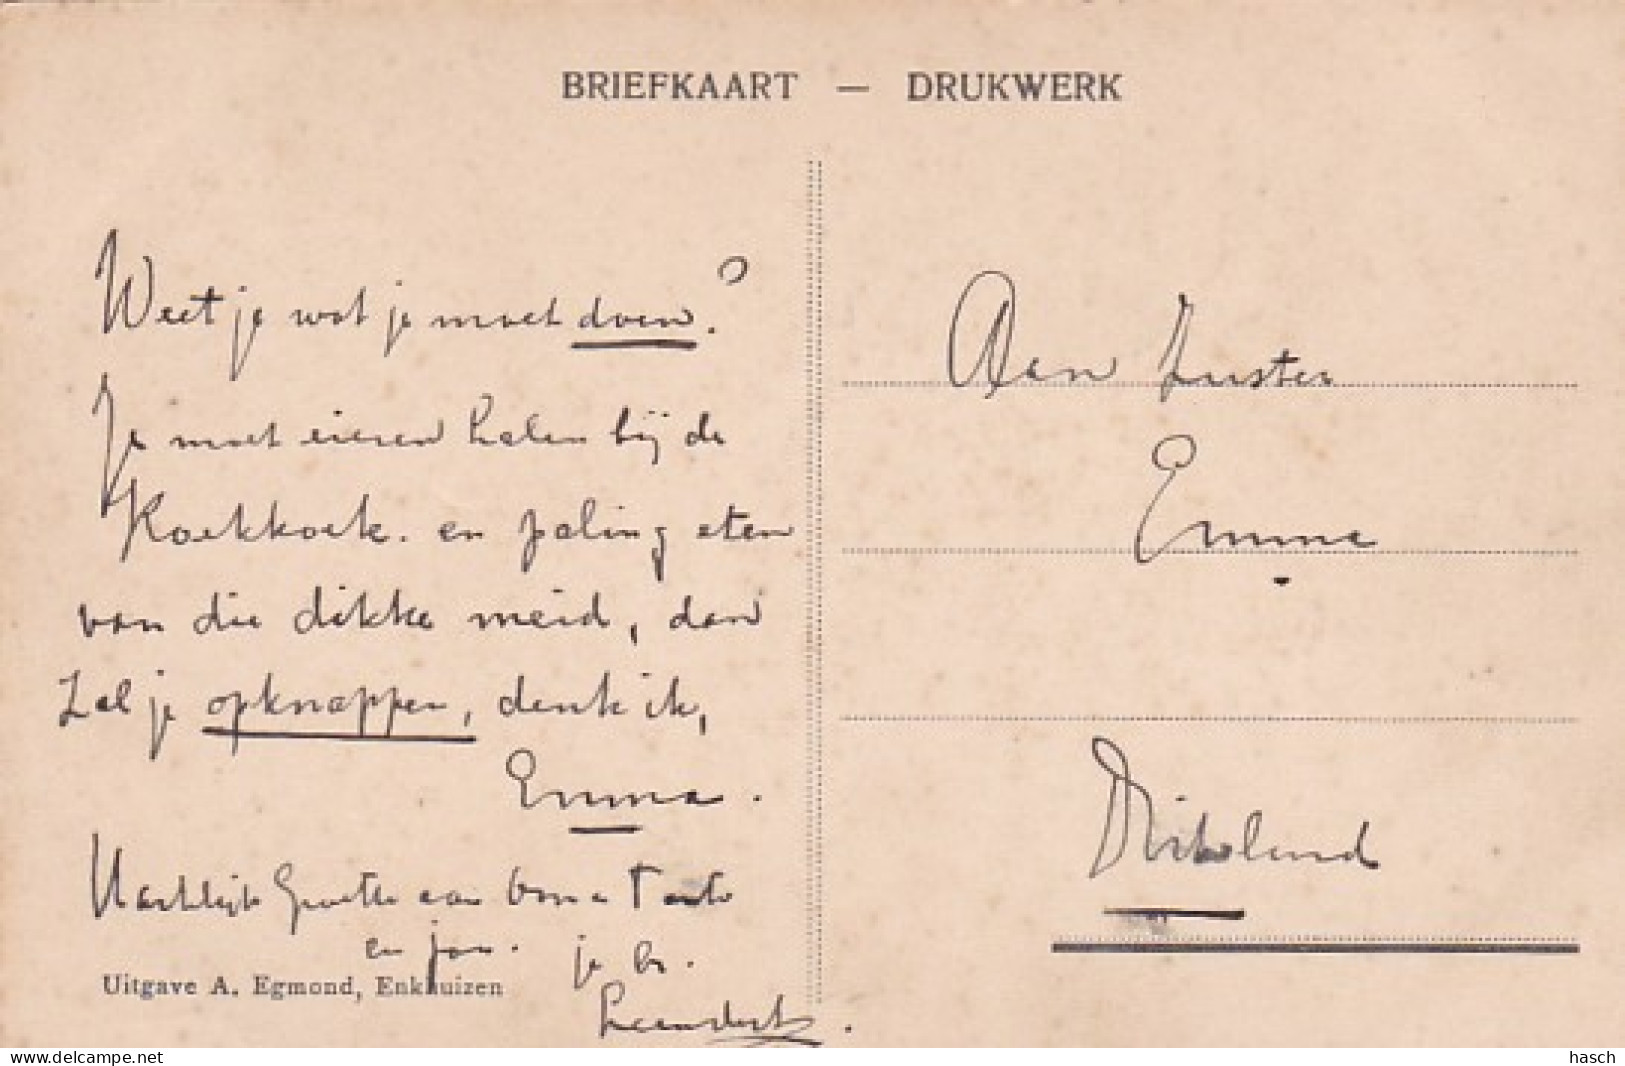 BRIEFKAART — DRUKWERK
Weet je wat je moet doen?
Je moet eieren halen bij de
Koekkoek. en paling eten
van die dikke meid, dan
Zal je opknappen, denk ik,
Emma.
Hartelijke Groeten aan Oom en Tante
en jou. je br.
Uitgave A. Egmond, Enkhuizen
Aan Zuster
Emma
delcampe.net
hasch